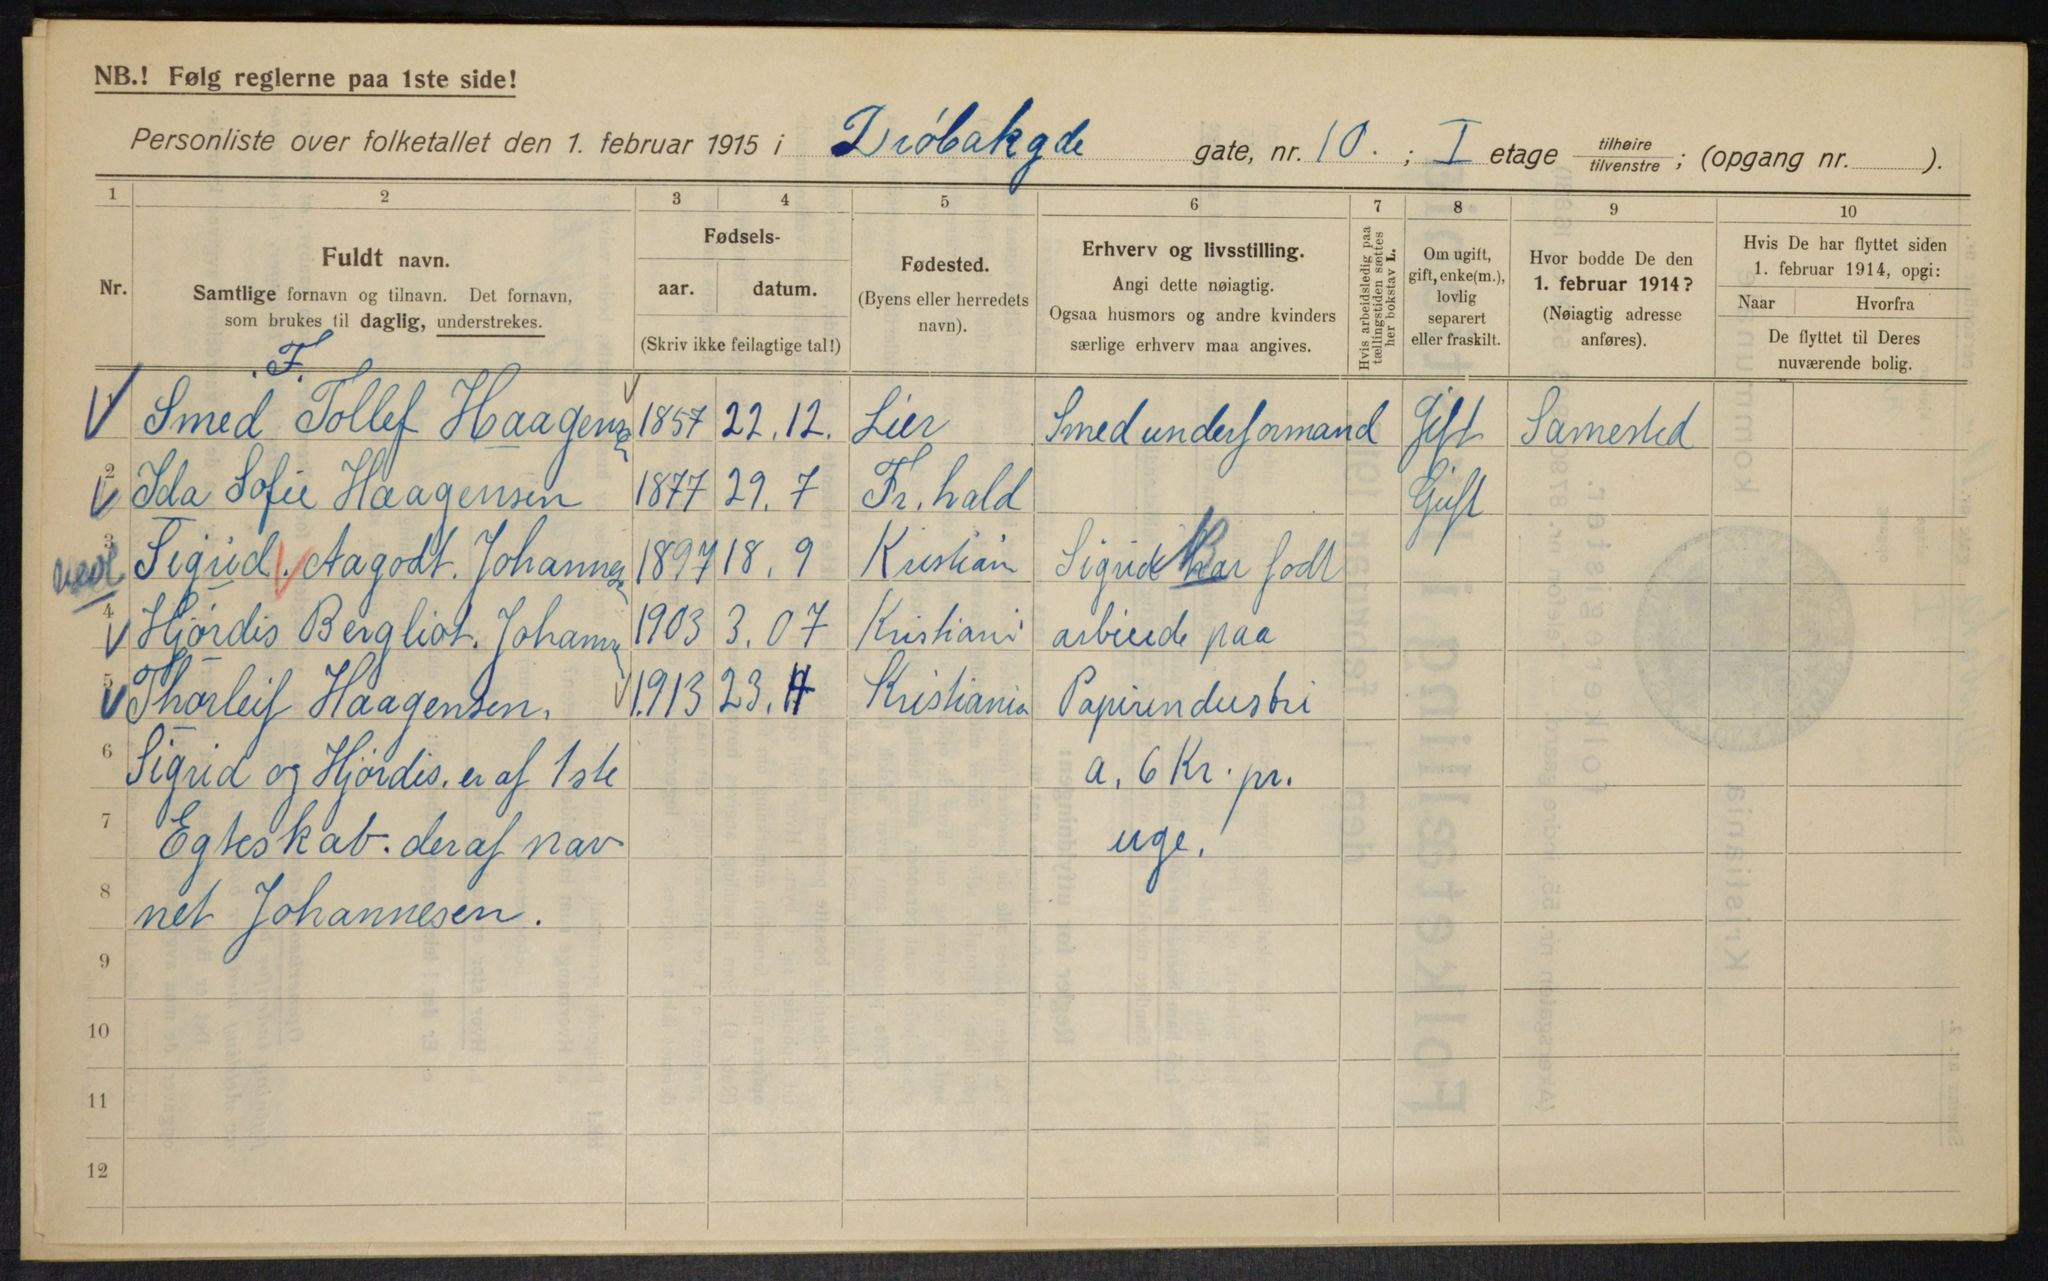 NB.! Følg reglerne paa 1ste side!
Personliste over folketallet den 1. februar 1915 i Drøbakgde gate, nr. 10. ; I etage tilhøire/tilvenstre ; (opgang nr. ).
1 2 3 4 5 6 7 8 9 10
Nr.
Fuldt navn.
Samtlige fornavn og tilnavn. Det fornavn,
som brukes til daglig, understrekes.
Fødsels-
aar. datum.
(Skriv ikke feilagtige tal!)
Fødested.
(Byens eller herredets
navn).
Erhverv og livsstilling.
Angi dette nøiagtig.
Ogsaa husmors og andre kvinders
særlige erhverv maa angives.
Hvis arbeidsledig paa
tællingstiden sættes
her bokstav L.
Om ugift,
gift, enke(m.),
lovlig
separert
eller fraskilt.
Hvor bodde De den
1. februar 1914?
(Nøiagtig adresse
anføres).
Hvis De har flyttet siden
1. februar 1914, opgi:
Naar Hvorfra
De flyttet til Deres
nuværende bolig.
F.
1 Smed Tollef Haagensen 1857 22. 12. Lier Smedunderformand Gift Samested
2 Ida Sofie Haagensen 1877 29. 7 Fr. hald Gift
3 Sigrid. Aagodt. Johannesen 1897 18. 9 Kristian Sigrid har fodt
4 Hjørdis Bergliot. Johann 1903 3. 07 Kristiani arbeide paa
5 Thorleif Haagensen. 1913 23. Kristiania Papirindustri
6 Sigrid og Hjørdis. er af 1ste a. 6 Kr. pr.
7 Egteskab. deraf nav uge.
8 net Johannesen.
9
10
11
12